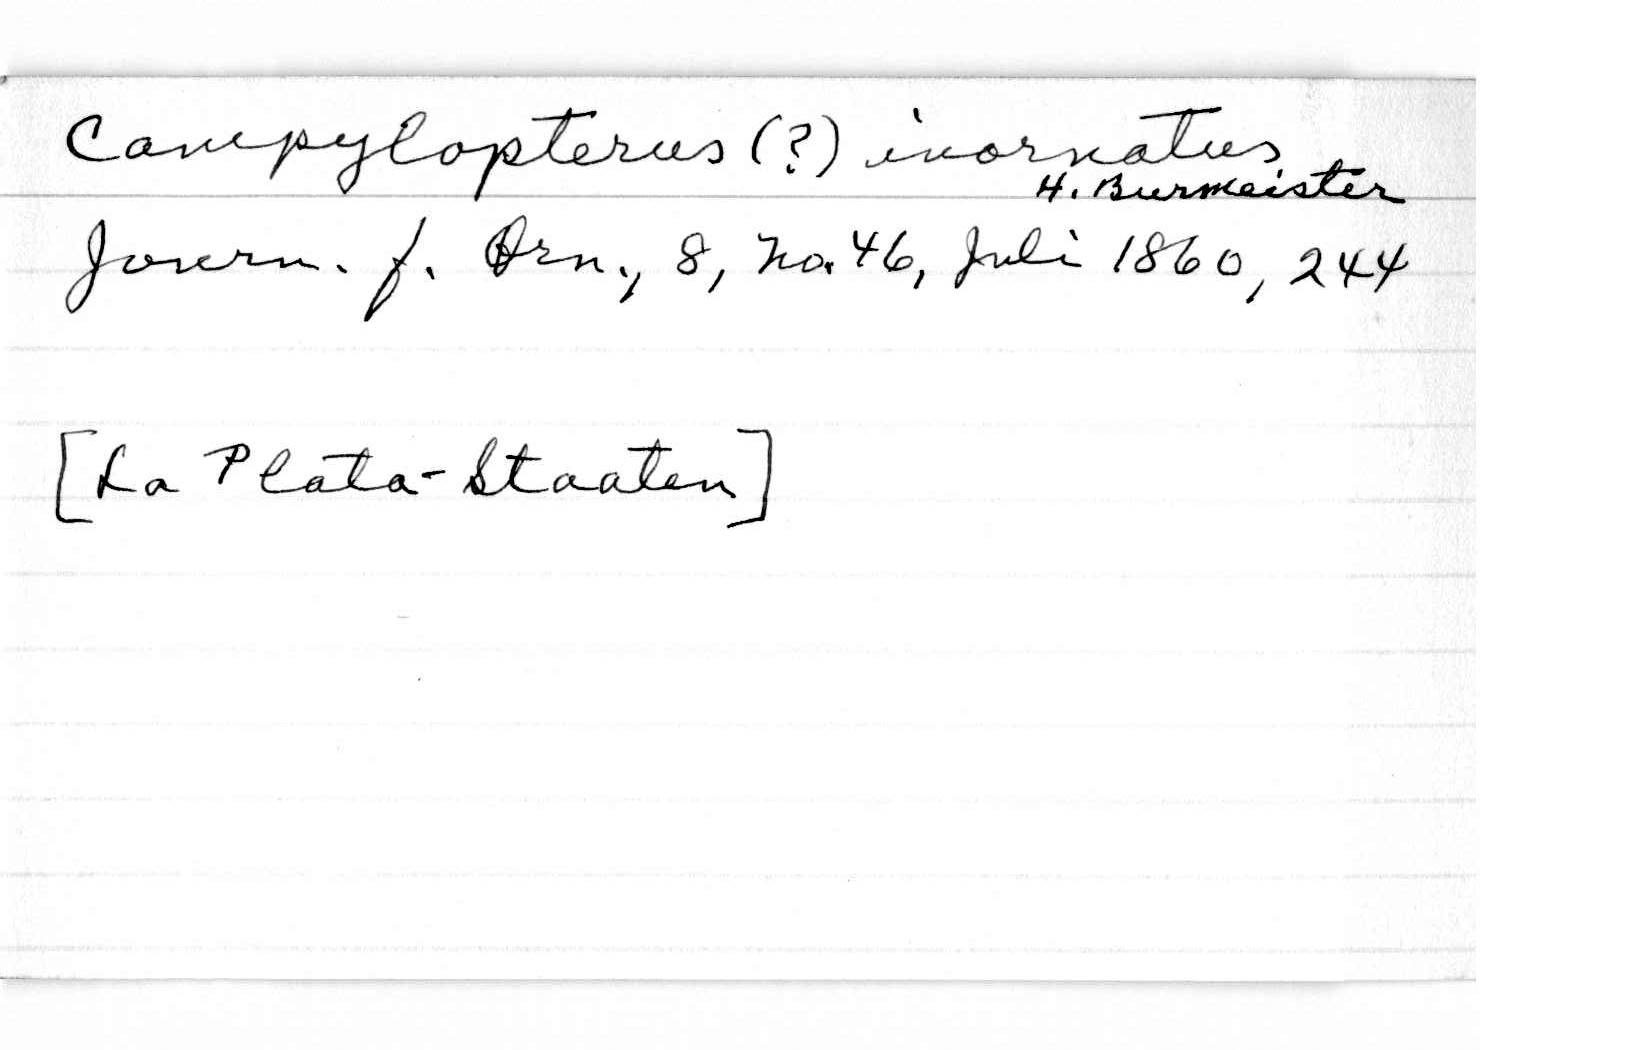 Campylopterus (?) inornatus
H. Burmeister
Journ. f. Orn., 8, no. 46, Juli 1860, 244
[La Plata-Staaten]